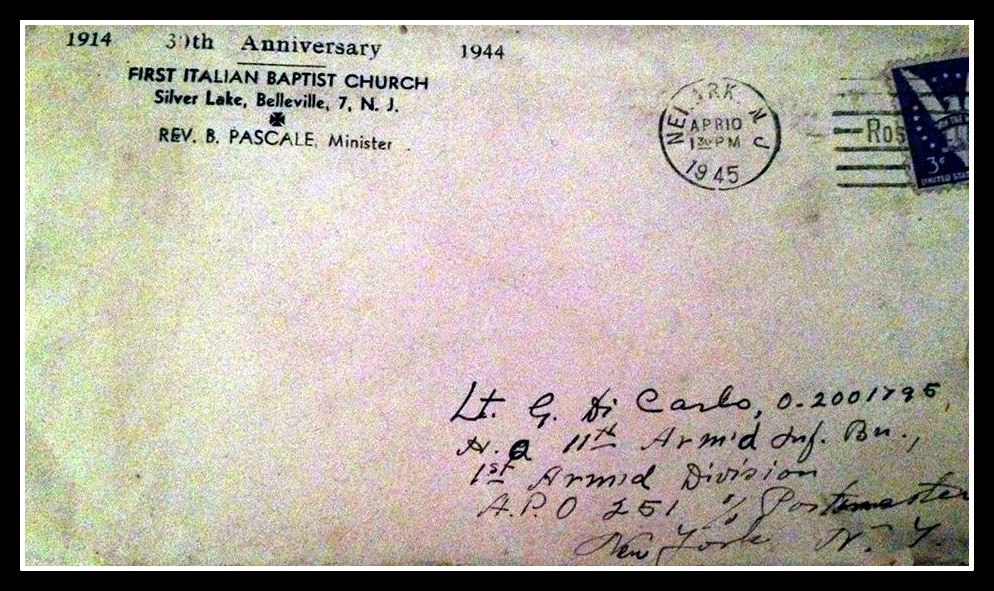 1914 30th Anniversary 1944
FIRST ITALIAN BAPTIST CHURCH
Silver Lake, Belleville, 7, N. J.
REV. B. PASCALE, Minister
NEWARK N J
APR 10
1 30 PM
1945
Ros
3¢
UNITED STA
Lt. G. Di Carlo, 0-2001795,
H.Q 11th Arm'd Inf. Bn.,
1st Arm'd Division
A.P.O 251 % Postmaster
New York N. Y.